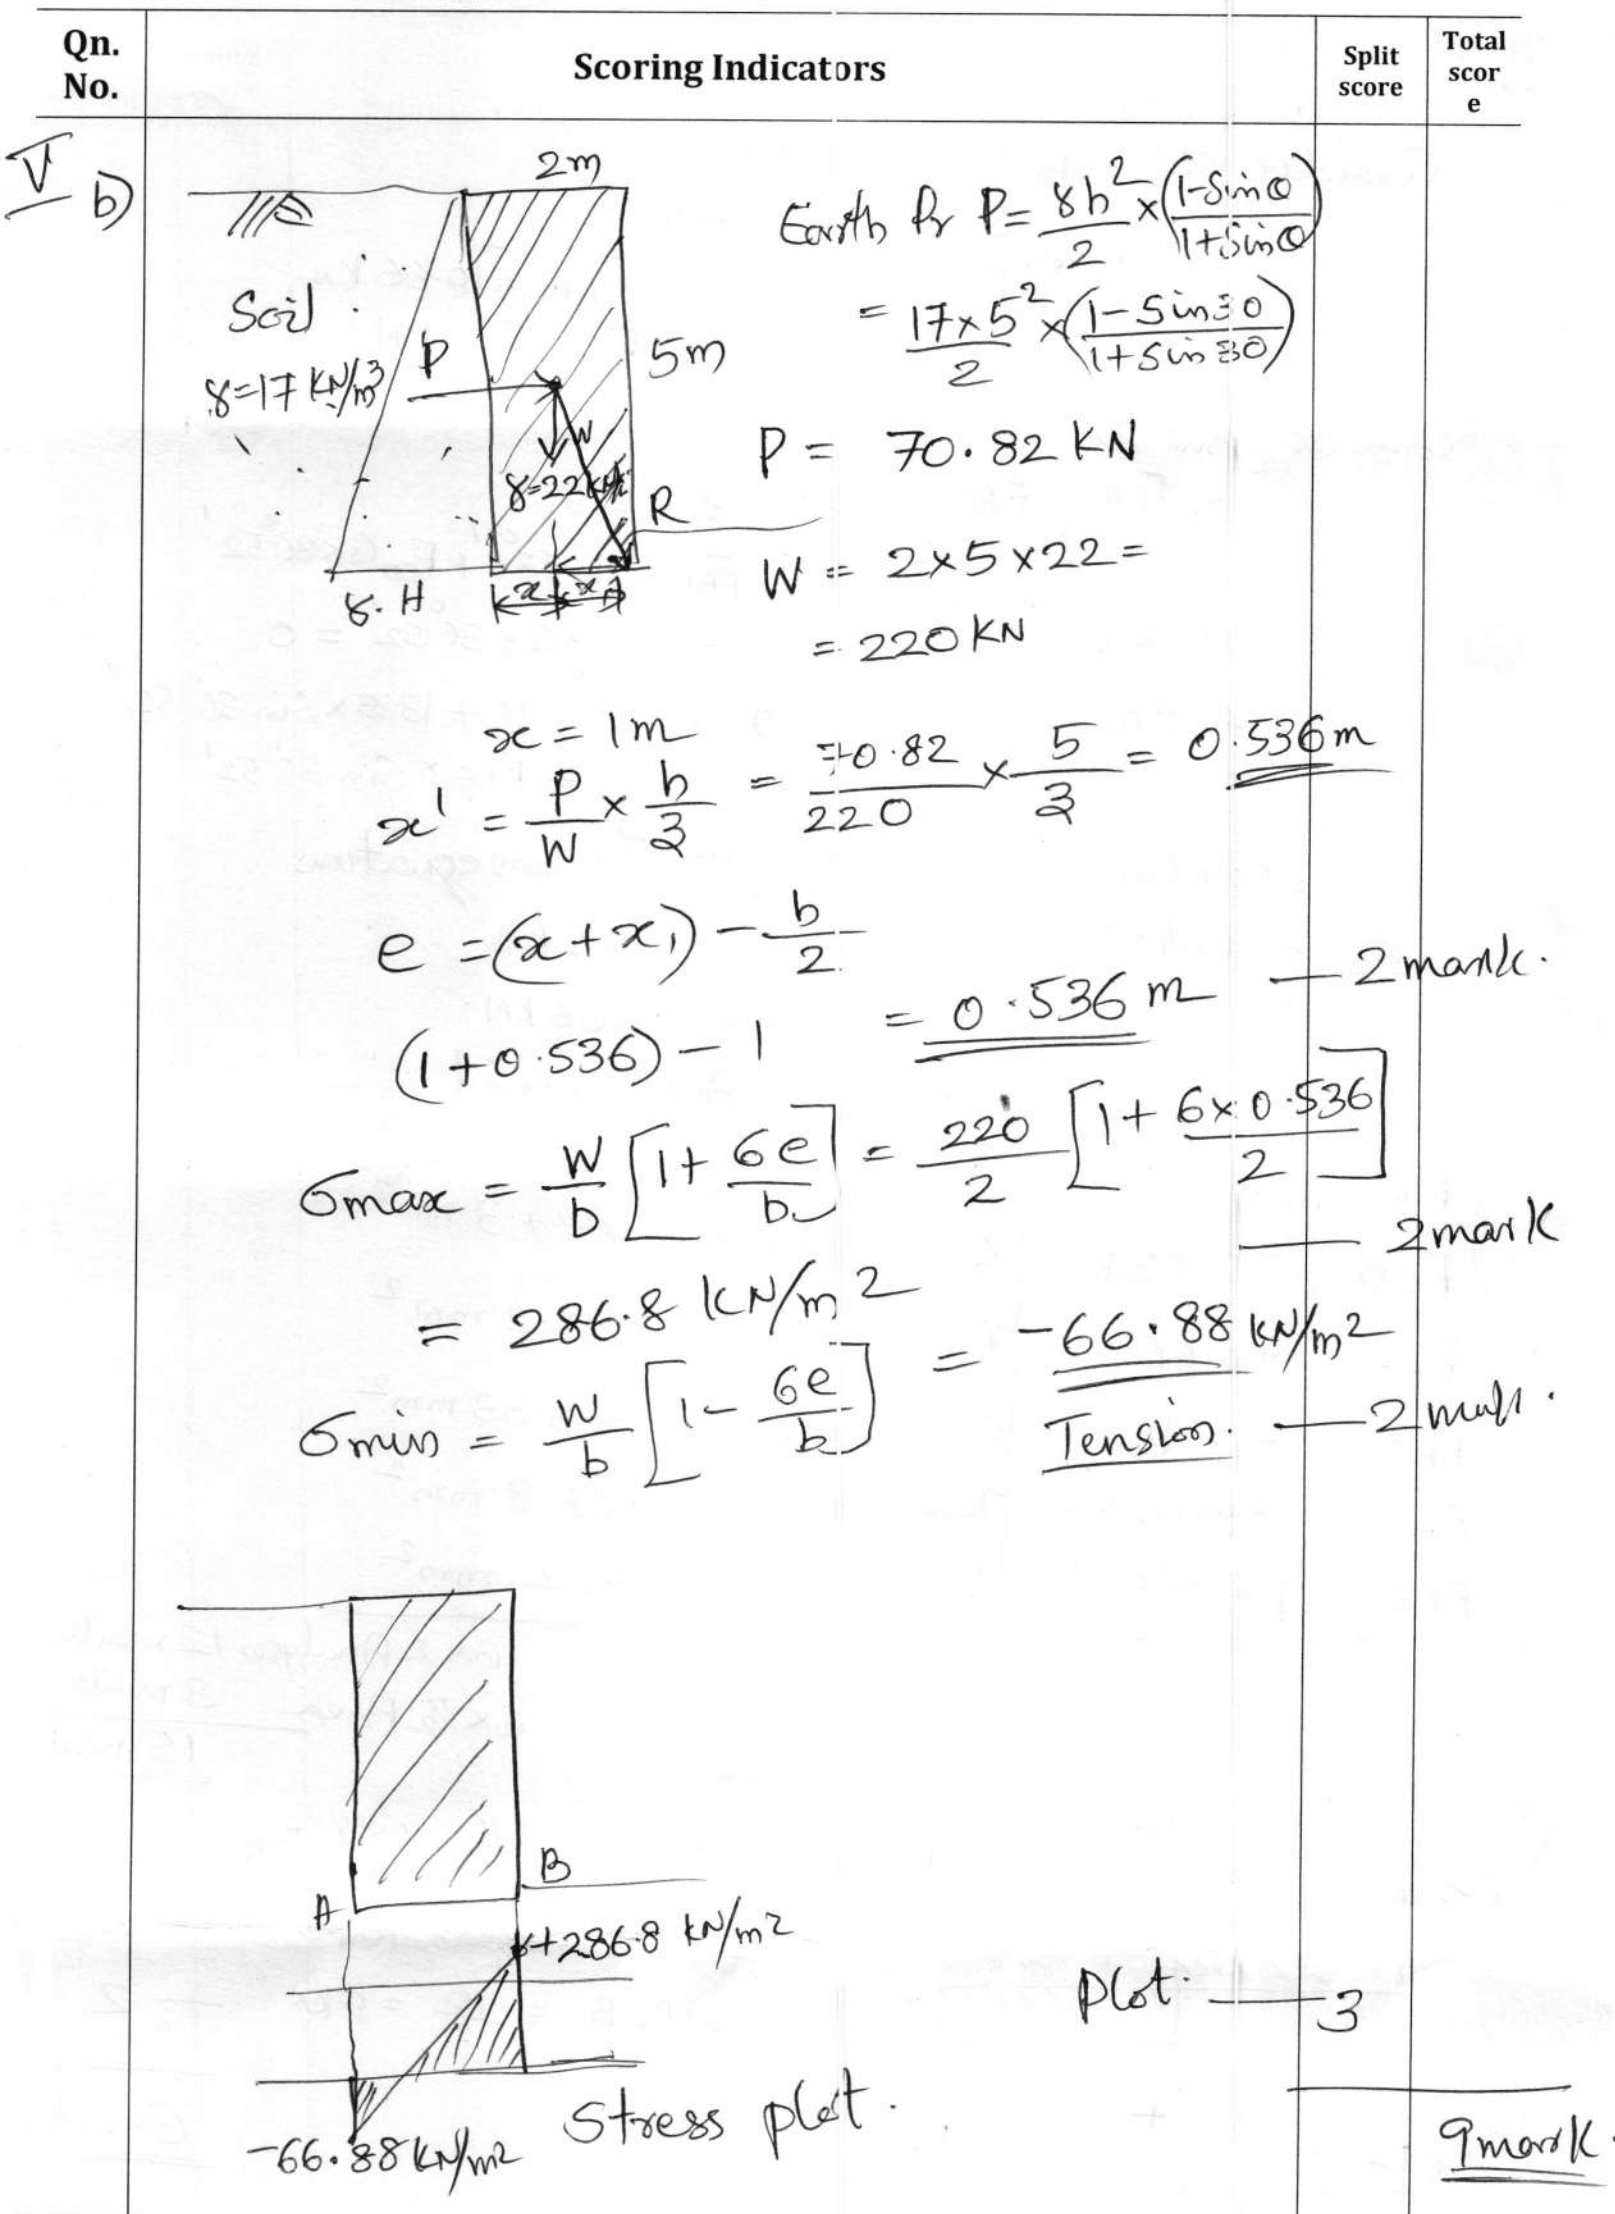 Qn. No.
Scoring Indicators
Split score
Total scor e
V b)
2m
Soil
γ=17 KN/m³
P
5m
W
γ=22 KN
R
γ.H
x x₁
Earth Pr P = γh²/2 × (1-Sinθ/1+Sinθ)
= 17×5²/2 × (1-Sin30/1+Sin30)
P = 70.82 KN
W = 2×5×22 =
= 220 KN
x = 1m
x¹ = P/W × h/3 = 70.82/220 × 5/3 = 0.536m
e = (x+x₁) - b/2
(1+0.536) - 1 = 0.536 m — 2 mark.
σmax = W/b [1+ 6e/b] = 220/2 [1+ 6×0.536/2]
— 2 mark
= 286.8 KN/m²
σmin = W/b [1- 6e/b] = -66.88 KN/m²
Tension. — 2 mark.
A
B
+286.8 KN/m²
Plot — 3
-66.88 KN/m²
Stress plot.
9 mark.